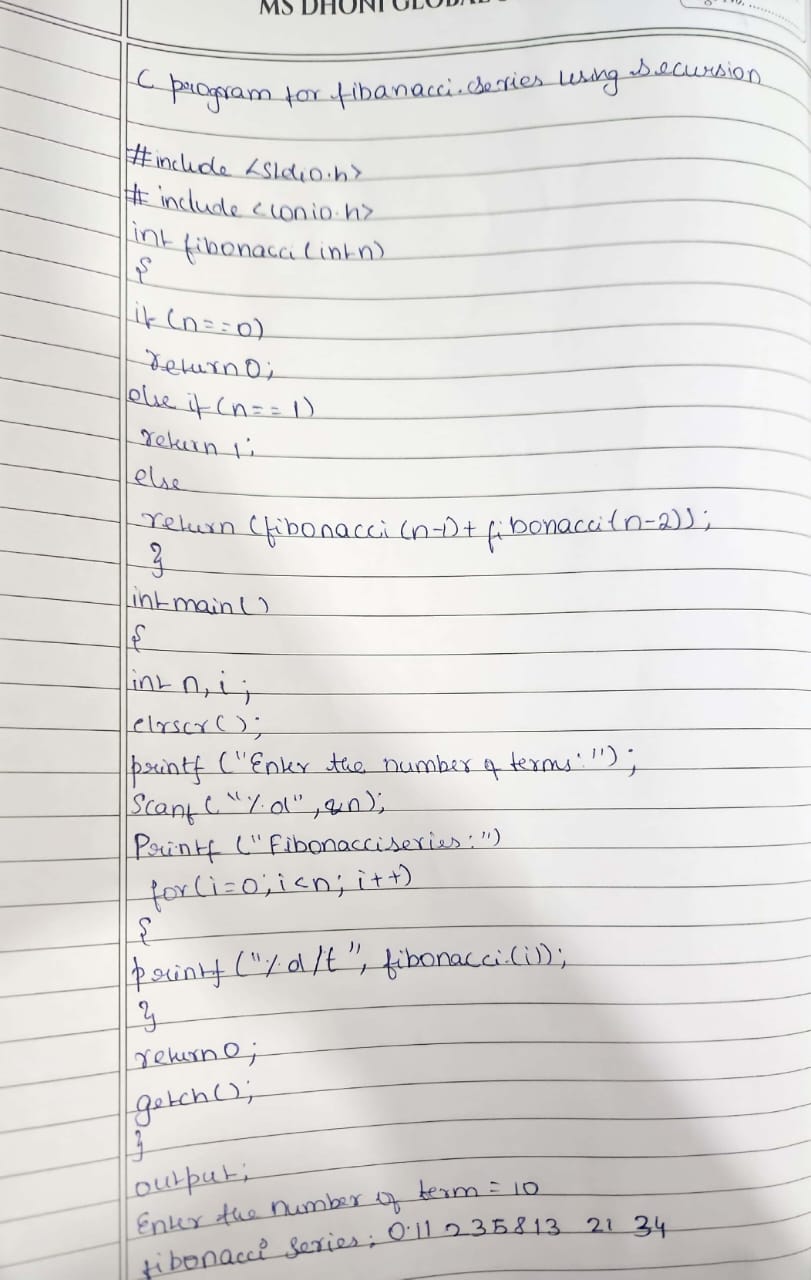 MS DHONI GLOBA
C program for fibanacci series using recursion
#include <stdio.h>
# include <conio.h>
int fibonacci (int n)
{
if (n==0)
return 0;
else if (n==1)
return 1;
else
return (fibonacci (n-1)+fibonacci(n-2));
}
int main()
{
int n, i;
clrscr();
printf ("Enter the number of terms:");
Scanf ("%d", &n);
Printf ("Fibonacci series:")
for(i=0; i<n; i++)
{
printf ("%d/t", fibonacci(i));
}
return 0;
getch();
}
output;
Enter the number of term = 10
fibonacci series: 0 11 2 3 5 8 13 21 34